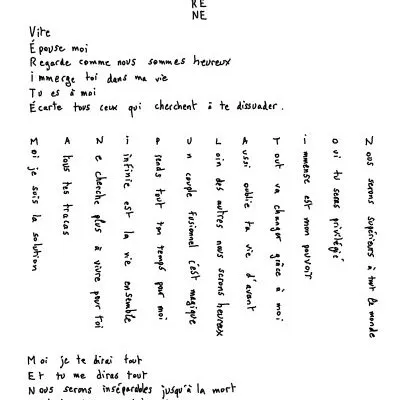 RE
NE
Vite
Épouse moi
Regarde comme nous sommes heureux
Immerge toi dans ma vie
Tu es à moi
Écarte tous ceux qui cherchent à te dissuader.
Moi je suis la solution
A tous tes tracas
Ne cherche plus à vivre pour toi
infinie est la vie ensemble
tout ton temps par moi
Un couple fusionnel c'est magique
Loin des autres nous serons heureux
Aussi oublie ta vie d'avant
Tout va changer grâce à moi
immense est mon pouvoir
Oui tu seras privilégié
Nous serons supérieurs à tout le monde
Moi je te dirai tout
Et tu me diras tout
Nous serons inséparables jusqu'à la mort